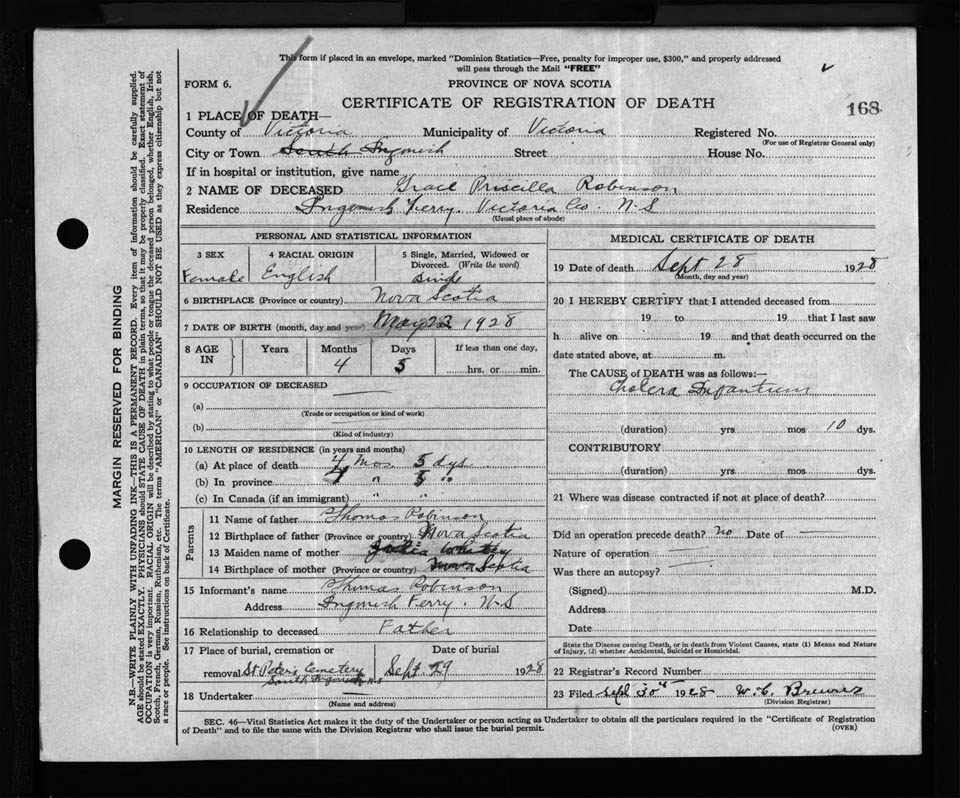 This form if placed in an envelope, marked "Dominion Statistics—Free, penalty for improper use, $300," and properly addressed
will pass through the Mail "FREE"
FORM 6.
PROVINCE OF NOVA SCOTIA
CERTIFICATE OF REGISTRATION OF DEATH
168
1 PLACE OF DEATH—
County of Victoria Municipality of Victoria Registered No.
(For use of Registrar General only)
City or Town South Ingonish Street House No.
If in hospital or institution, give name
2 NAME OF DECEASED Grace Priscilla Robinson
Residence Ingonish Ferry. Victoria Co. N.S
(Usual place of abode)
PERSONAL AND STATISTICAL INFORMATION
3 SEX
Female
4 RACIAL ORIGIN
English
5 Single, Married, Widowed or
Divorced. (Write the word)
Single
6 BIRTHPLACE (Province or country) Nova Scotia
7 DATE OF BIRTH (month, day and year) May 23 1928
8 AGE IN
Years Months Days If less than one day,
4 5 hrs. or min.
9 OCCUPATION OF DECEASED
(a)
(Trade or occupation or kind of work)
(b)
(Kind of industry)
10 LENGTH OF RESIDENCE (in years and months)
(a) At place of death 4 Mos 5 dys
(b) In province 4 " 5 "
(c) In Canada (if an immigrant) " "
Parents
11 Name of father Thomas Robinson
12 Birthplace of father (Province or country) Nova Scotia
13 Maiden name of mother Julia
14 Birthplace of mother (Province or country) Nova Scotia
15 Informant's name Thomas Robinson
Address Ingonish Ferry. N.S
16 Relationship to deceased Father
17 Place of burial, cremation or Date of burial
removal St Peters Cemetery Sept 29 1928
South Ingonish N.S
18 Undertaker
(Name and address)
MEDICAL CERTIFICATE OF DEATH
19 Date of death Sept 28 1928
(Month, day and year)
20 I HEREBY CERTIFY that I attended deceased from
19 to 19 that I last saw
h alive on 19 and that death occurred on the
date stated above, at m.
The CAUSE of DEATH was as follows:—
Cholera Infantum
(duration) yrs mos 10 dys.
CONTRIBUTORY
(duration) yrs. mos dys.
21 Where was disease contracted if not at place of death?
Did an operation precede death? no Date of —
Nature of operation —
Was there an autopsy? —
(Signed) M.D.
Address
Date
State the Disease causing Death, or in death from Violent Causes, state (1) Means and Nature
of Injury, (2) whether Accidental, Suicidal or Homicidal.
22 Registrar's Record Number
23 Filed Sept 30th 1928 W. C. Brewer
(Division Registrar)
SEC. 46—Vital Statistics Act makes it the duty of the Undertaker or person acting as Undertaker to obtain all the particulars required in the "Certificate of Registration
of Death" and to file the same with the Division Registrar who shall issue the burial permit.
(OVER)
MARGIN RESERVED FOR BINDING
N.B.—WRITE PLAINLY WITH UNFADING INK—THIS IS A PERMANENT RECORD. Every item of information should be carefully supplied.
AGE should be stated EXACTLY. PHYSICIANS should STATE CAUSE OF DEATH in plain terms, so that it may be properly classified. Exact statement of
OCCUPATION is very important. RACIAL ORIGIN will be described by stating to what people or tongue the deceased person belonged, whether English, Irish,
Scotch, French, German, Russian, Ruthenian, etc. The terms "AMERICAN" or "CANADIAN" SHOULD NOT BE USED as they express citizenship but not
a race or people. See instructions on back of Certificate.